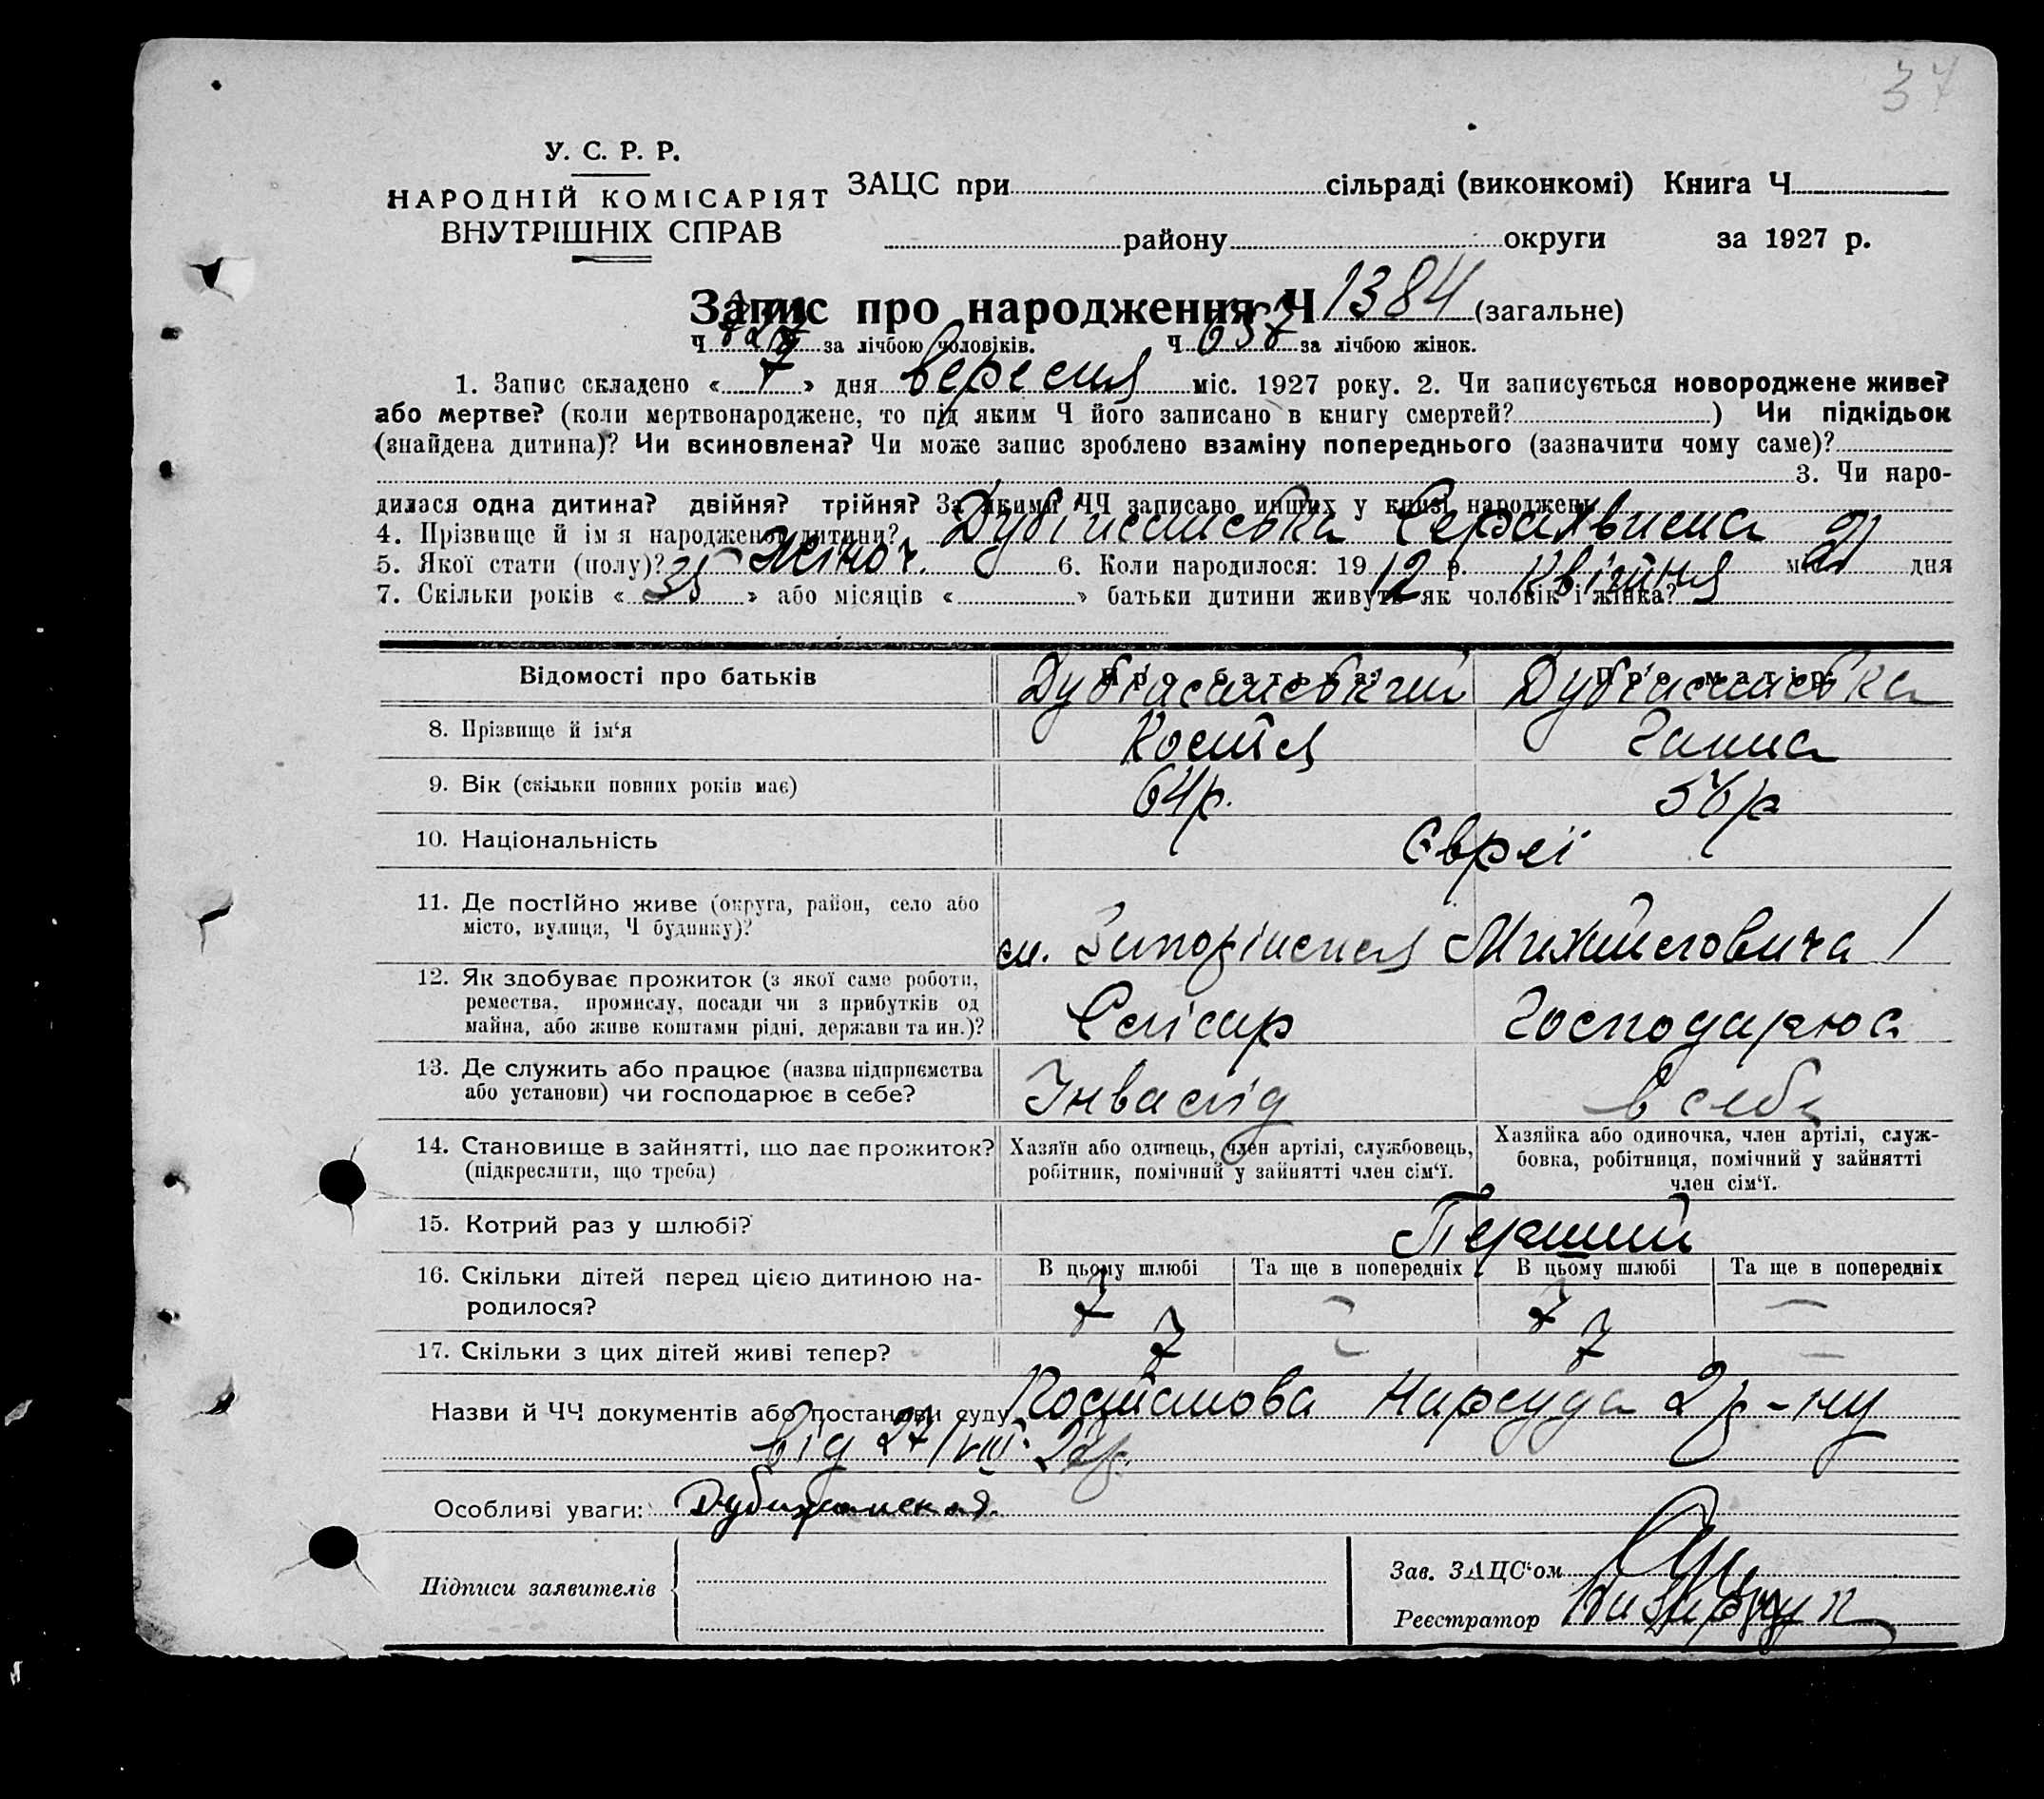 37
У. С. Р. Р.
НАРОДНІЙ КОМІСАРІЯТ
ВНУТРІШНІХ СПРАВ
ЗАЦС при сільраді (виконкомі) Книга Ч
району округи за 1927 р.
Запис про народження Ч 1384 (загальне)
Ч 727 за лічбою чоловіків. Ч 657 за лічбою жінок.
1. Запис складено « 7 » дня вересня міс. 1927 року. 2. Чи записується новороджене живе?
або мертве? (коли мертвонароджене, то під яким Ч його записано в книгу смертей? ) Чи підкідьок
(знайдена дитина)? Чи всиновлена? Чи може запис зроблено взаміну попереднього (зазначити чому саме)?
3. Чи наро-
дилася одна дитина? двійня? трійня? За якими ЧЧ записано инших у книзі народжень
4. Прізвище й ім'я народженої дитини?
5. Якої стати (полу)? жіноч. 6. Коли народилося: 1912 р. Квітня міс. 2 дня
7. Скільки років « 35 » або місяців « » батьки дитини живуть як чоловік і жінка?
Відомості про батьків Про батька: Про матір:
8. Прізвище й ім‘я Костя Ганна
9. Вік (скільки повних років має) 64 р. 56 р
10. Національність Євреї
11. Де постійно живе (округа, район, село або
місто, вулиця, Ч будинку)?
м. Запоріжжя 1
12. Як здобуває прожиток (з якої саме роботи,
ремества, промислу, посади чи з прибутків од
майна, або живе коштами рідні, держави та ин.)?
Слісар Господарює
13. Де служить або працює (назва підприємства
або установи) чи господарює в себе?
Інвалід в себе
14. Становище в зайнятті, що дає прожиток?
(підкреслити, що треба)
Хазяїн або одинець, член артілі, службовець,
робітник, помічний у зайнятті член сім‘ї.
Хазяйка або одиночка, член артілі, служ-
бовка, робітниця, помічний у зайнятті
член сім‘ї.
15. Котрий раз у шлюбі? Перший
В цьому шлюбі Та ще в попередніх В цьому шлюбі Та ще в попередніх
16. Скільки дітей перед цією дитиною на-
родилося?
7 – 7 –
17. Скільки з цих дітей живі тепер? 7 – 7 –
Назви й ЧЧ документів або постанови суду Постанова Нарсуда 2 р-ну
від 27/VIII. 27 р.
Особливі уваги:
Підписи заявителів
Зав. ЗАЦС‘ом
Реєстратор